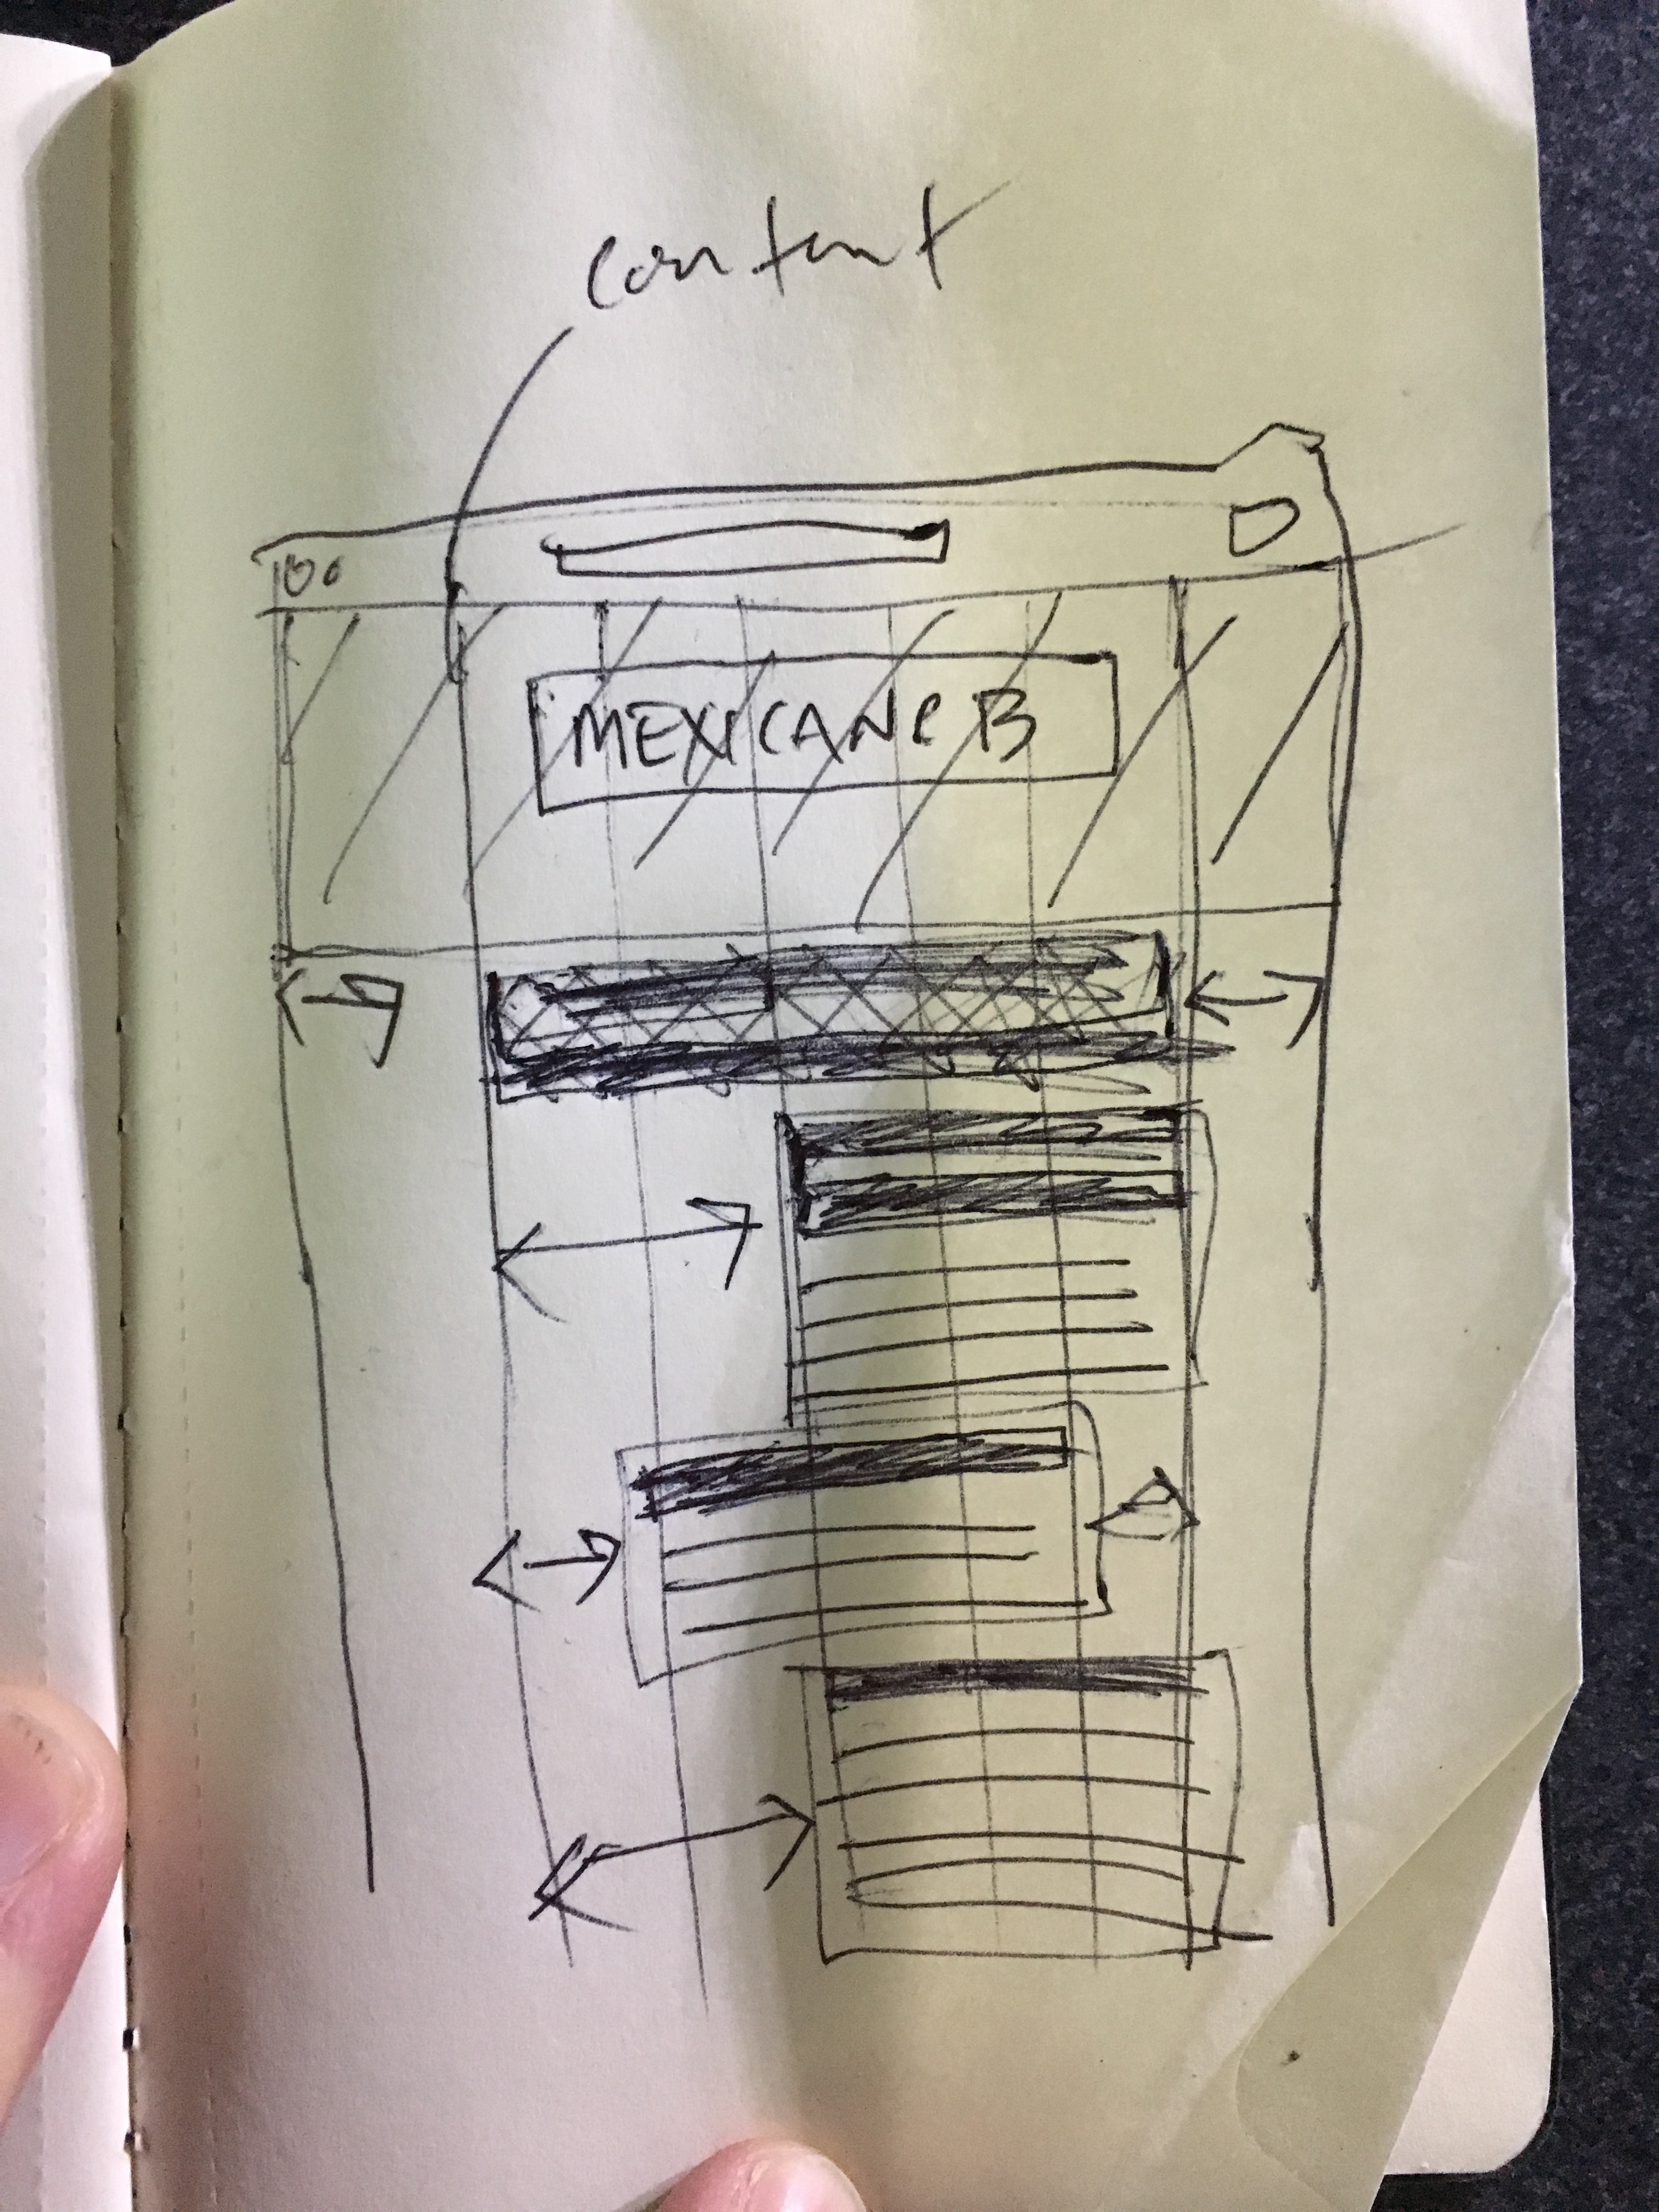 content
MEXICANE B